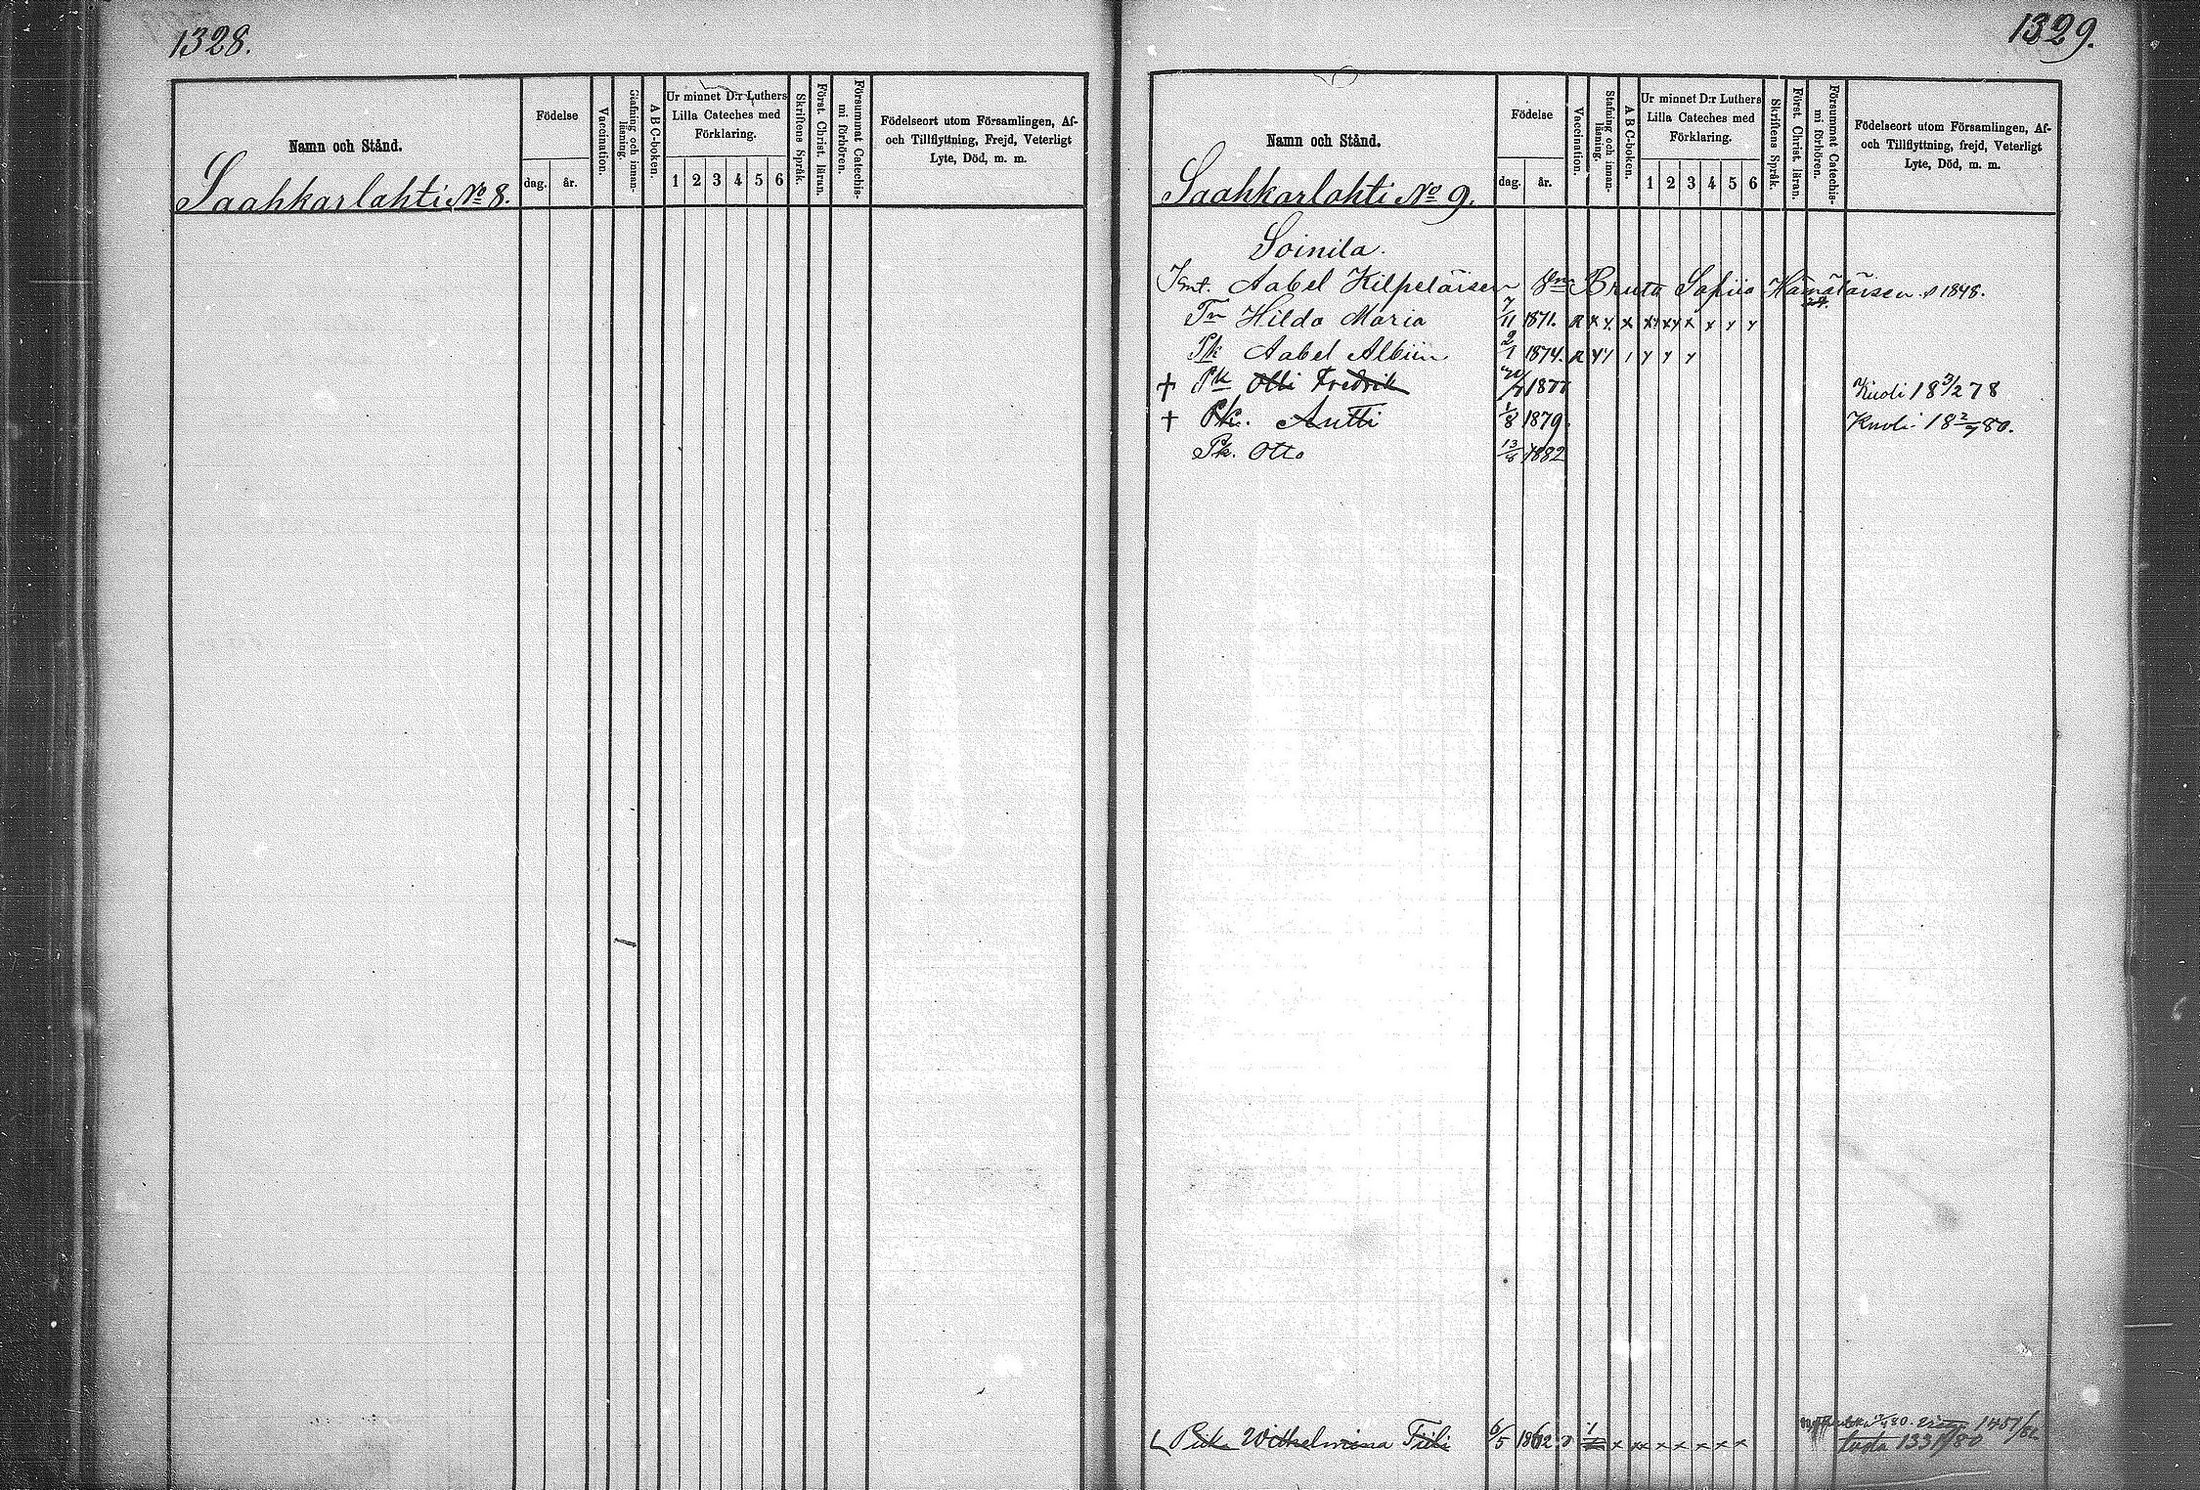 1328.
Namn och Stånd.
Födelse
dag.
år.
Vaccination.
Stafning och innan-
läsning.
A B C-boken.
Ur minnet D:r Luthers
Lilla Cateches med
Förklaring.
1 2 3 4 5 6
Skriftens Språk.
Först. Christ. läran.
Försummat Catechis-
mi förhören.
Födelseort utom Församlingen, Af-
och Tillflyttning, Frejd, Veterligt
Lyte, Död, m. m.
Saahkarlahti No 8.
1329.
Namn och Stånd.
Födelse
dag.
år.
Vaccination.
Stafning och innan-
läsning.
A B C-boken.
Ur minnet D:r Luthers
Lilla Cateches med
Förklaring.
1 2 3 4 5 6
Skriftens Språk.
Först. Christ. läran.
Försummat Catechis-
mi förhören.
Födelseort utom Församlingen, Af-
och Tillflyttning, frejd, Veterligt
Lyte, Död, m. m.
Saahkarlahti No 9.
Soinila.
Aabel Kilpeläisen Bruta Sofiia Hämäläisen 1848.
Tr Hilda Maria 7/11 1871. x x x x x x x
Pk Aabel Albiin 2/1 1874.
† Pk Olli Fredrik 1877 Kuoli 18 3/2 78
† Pk. Antti 1/8 1879. Kuoli 18 2/7 80.
Pk. Otto 13/6 1882
Piika Wilhelmina Tiili 6/5 1862 x x x x x x x
tusta 1331/80